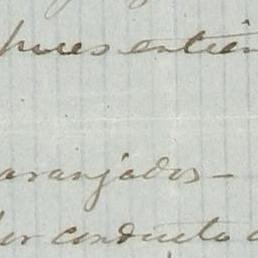 pues entien
aranjados –
or conducto